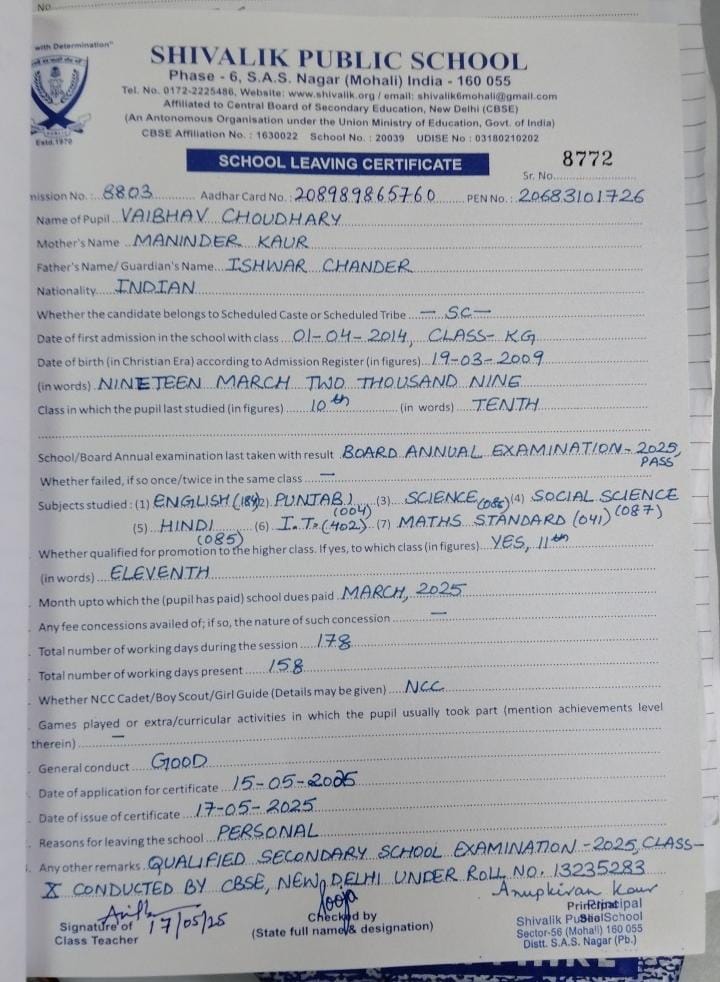 No.
with Determination"
Estd.1970
SHIVALIK PUBLIC SCHOOL
Phase - 6, S.A.S. Nagar (Mohali) India - 160 055
Tel. No. 0172-2225486, Website: www.shivalik.org / email: shivalik6mohali@gmail.com
Affiliated to Central Board of Secondary Education, New Delhi (CBSE)
(An Antonomous Organisation under the Union Ministry of Education, Govt. of India)
CBSE Affiliation No. : 1630022 School No. : 20039 UDISE No : 03180210202
SCHOOL LEAVING CERTIFICATE
Sr. No. 8772
mission No.: 8803 Aadhar Card No.: 208989865760 PEN No.: 20683101726
Name of Pupil VAIBHAV CHOUDHARY
Mother's Name MANINDER KAUR
Father's Name/ Guardian's Name ISHWAR CHANDER
Nationality INDIAN
Whether the candidate belongs to Scheduled Caste or Scheduled Tribe — SC —
Date of first admission in the school with class 01-04-2014, CLASS- KG
Date of birth (in Christian Era) according to Admission Register (in figures) 19-03-2009
(in words) NINETEEN MARCH TWO THOUSAND NINE
Class in which the pupil last studied (in figures) 10th (in words) TENTH
School/Board Annual examination last taken with result BOARD ANNUAL EXAMINATION-2025,
PASS
Whether failed, if so once/twice in the same class —
Subjects studied : (1) ENGLISH (184) (2) PUNJABI (3) SCIENCE (086) (4) SOCIAL SCIENCE
(004) (087)
(5) HINDI (6) I.T. (402) (7) MATHS STANDARD (041)
(085)
Whether qualified for promotion to the higher class. If yes, to which class (in figures) YES, 11th
(in words) ELEVENTH
Month upto which the (pupil has paid) school dues paid MARCH, 2025
Any fee concessions availed of; if so, the nature of such concession —
Total number of working days during the session 178
Total number of working days present 158
Whether NCC Cadet/Boy Scout/Girl Guide (Details may be given) NCC
Games played or extra/curricular activities in which the pupil usually took part (mention achievements level
therein) —
General conduct GOOD
Date of application for certificate 15-05-2025
Date of issue of certificate 17-05-2025
Reasons for leaving the school PERSONAL
Any other remarks QUALIFIED SECONDARY SCHOOL EXAMINATION -2025, CLASS-
X CONDUCTED BY CBSE, NEW DELHI UNDER ROLL NO. 13235283
Anupkiran Kaur
Pooja
17/05/25
Signature of
Class Teacher
Checked by
(State full name & designation)
Principal
Principal
Shivalik Public School
Seal
Sector-56 (Mohali) 160 055
Distt. S.A.S. Nagar (Pb.)